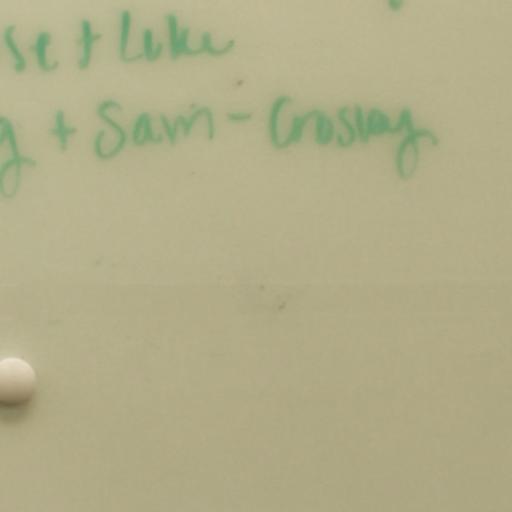 se + Luke
g + Sam - Croslay